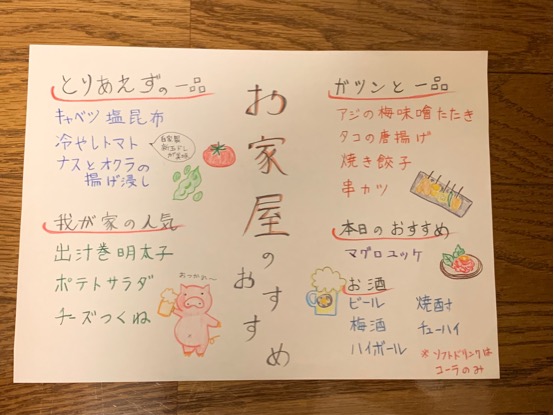 お家屋のおすすめ
とりあえずの一品
キャベツ塩昆布
冷やしトマト
ナスとオクラの
揚げ浸し
我が家の人気
出汁巻明太子
ポテトサラダ
チーズつくね
おつかれ〜
ガツンと一品
アジの梅味噌たたき
タコの唐揚げ
焼き餃子
串カツ
本日のおすすめ
マグロユッケ
お酒
ビール
梅酒
ハイボール
焼酎
チューハイ
※ソフトドリンクは
コーラのみ